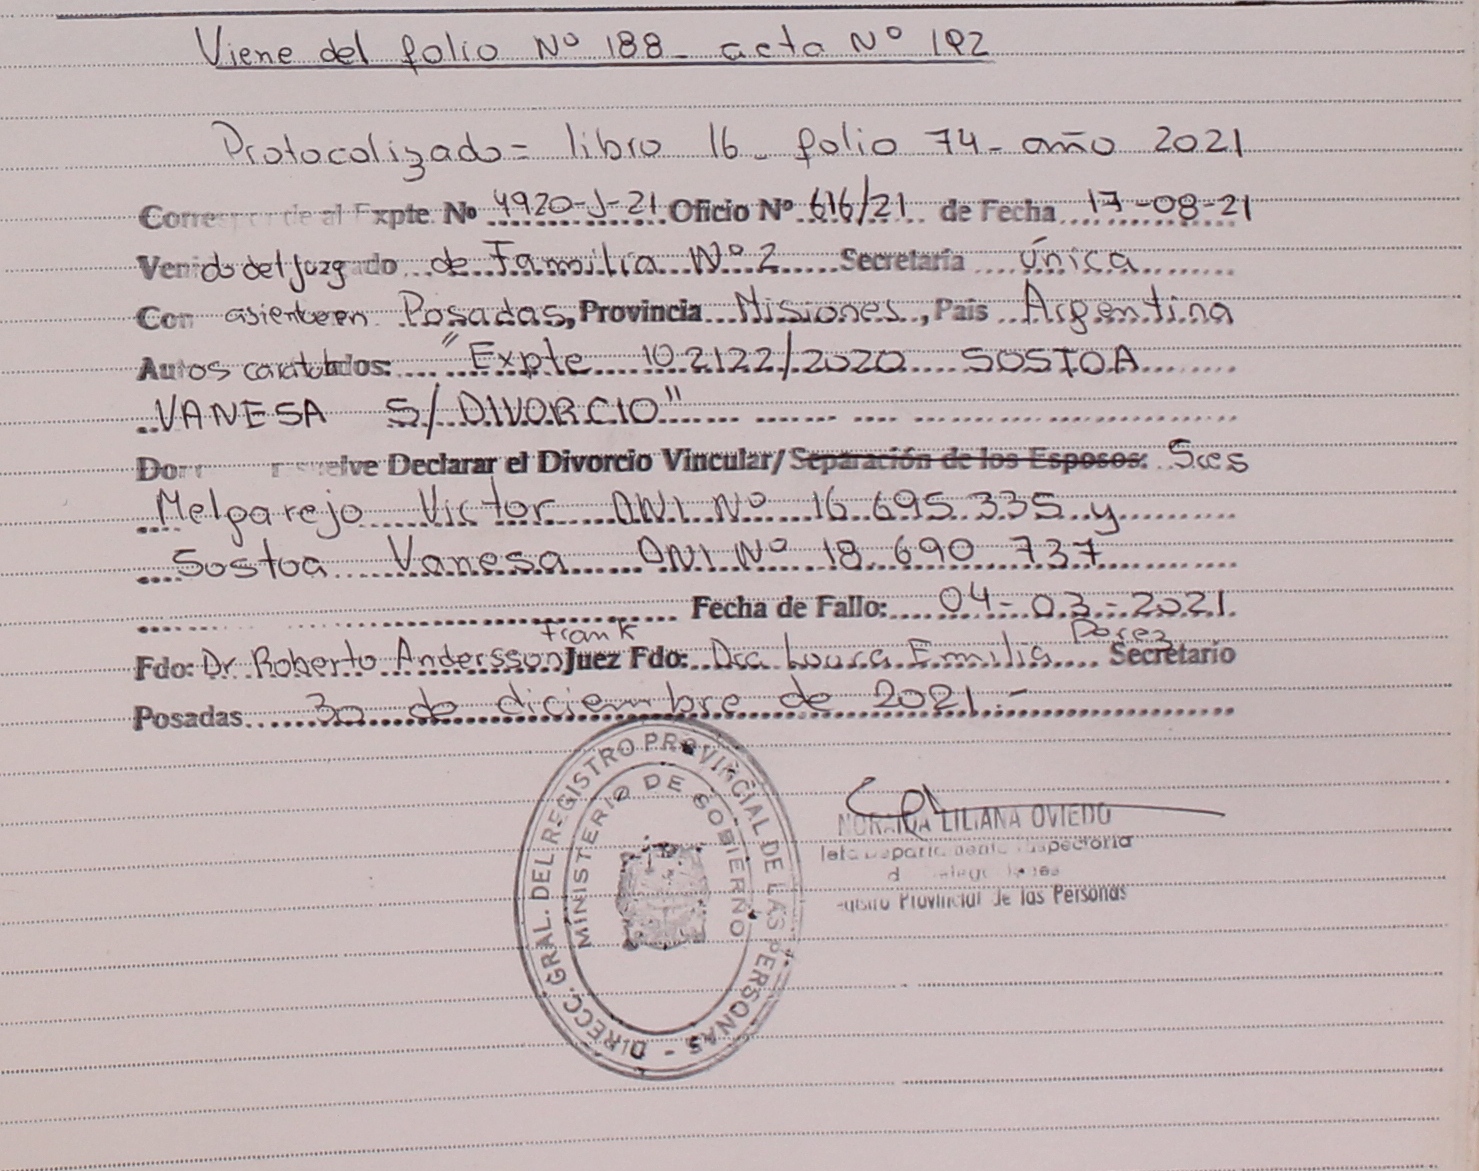 Viene del folio Nº 188 - acta Nº 192
Protocolizado = libro 16 - folio 74 - año 2021
Corresponde al Expte. Nº 4920-J-21 Oficio Nº 616/21 de Fecha 17-08-21
Venido del Juzgado de Familia Nº 2 Secretaría única
Con asiento en Posadas, Provincia Misiones, País Argentina
Autos caratulados: "Expte 102122/2020 SOSTOA
VANESA S/ DIVORCIO"
resuelve Declarar el Divorcio Vincular/Separación de los Esposos: Sres
Melgarejo Victor DNI Nº 16 695 335 y
Sostoa Vanesa DNI Nº 18 690 737
Fecha de Fallo: 04-03-2021.
Fdo: Dr. Roberto Andersson Frank Juez Fdo: Dra Laura Emilia Perez Secretario
Posadas 30 de diciembre de 2021.-
DIRECC. GRAL. DEL REGISTRO PROVINCIAL DE LAS PERSONAS -
MINISTERIO DE GOBIERNO
LILIANA OVIEDO
Provincial de las Personas